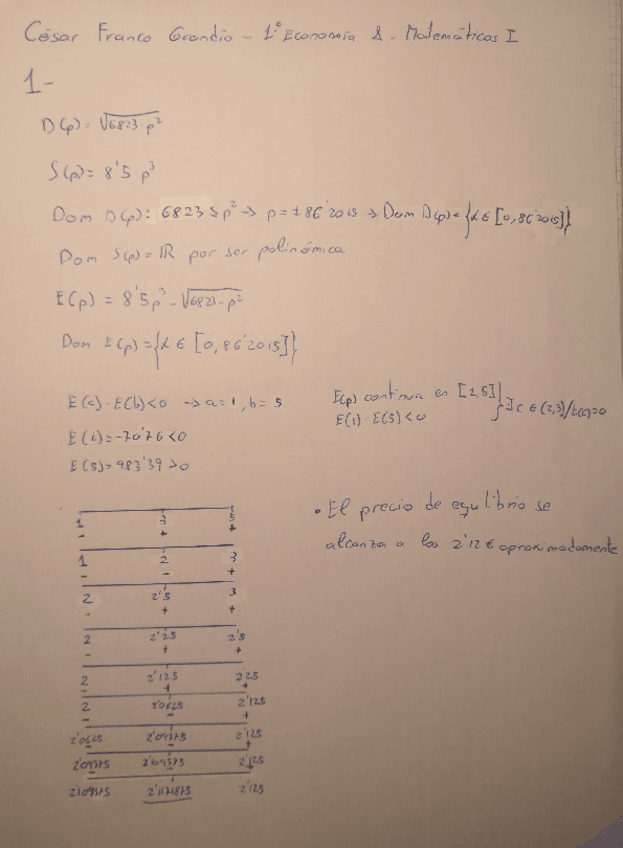 César Franco Grandio - 1º Economía A - Matemáticas I
1-
D(p) = √6823-p²
S(p) = 8'5 p³
Dom D(p): 6823 ≤ p² → p = ±86'2015 → Dom D(p) = {x ∈ [0, 86'2015]}
Dom S(p) = IR por ser polinómica
E(p) = 8'5p³ - √6823-p²
Dom E(p) = {x ∈ [0, 86'2015]}
E(a)·E(b)<0 → a=1, b=5
E(1) = -70'76 <0
E(5) = 983'39 >0
E(p) continua en [1,5]
E(1)·E(5)<0 } ∃ c ∈ (2,3)/E(c)=0
• El precio de equilibrio se
alcanza a los 2'12 € aproximadamente
1 3 5
- + +
1 2 3
- - +
2 2'5 3
- + +
2 2'25 2'5
- + +
2 2'125 2'25
- + +
2 2'0625 2'125
- - +
2'0625 2'09375 2'125
- - +
2'09375 2'109375 2'125
- - +
2'109375 2'1171875 2'125